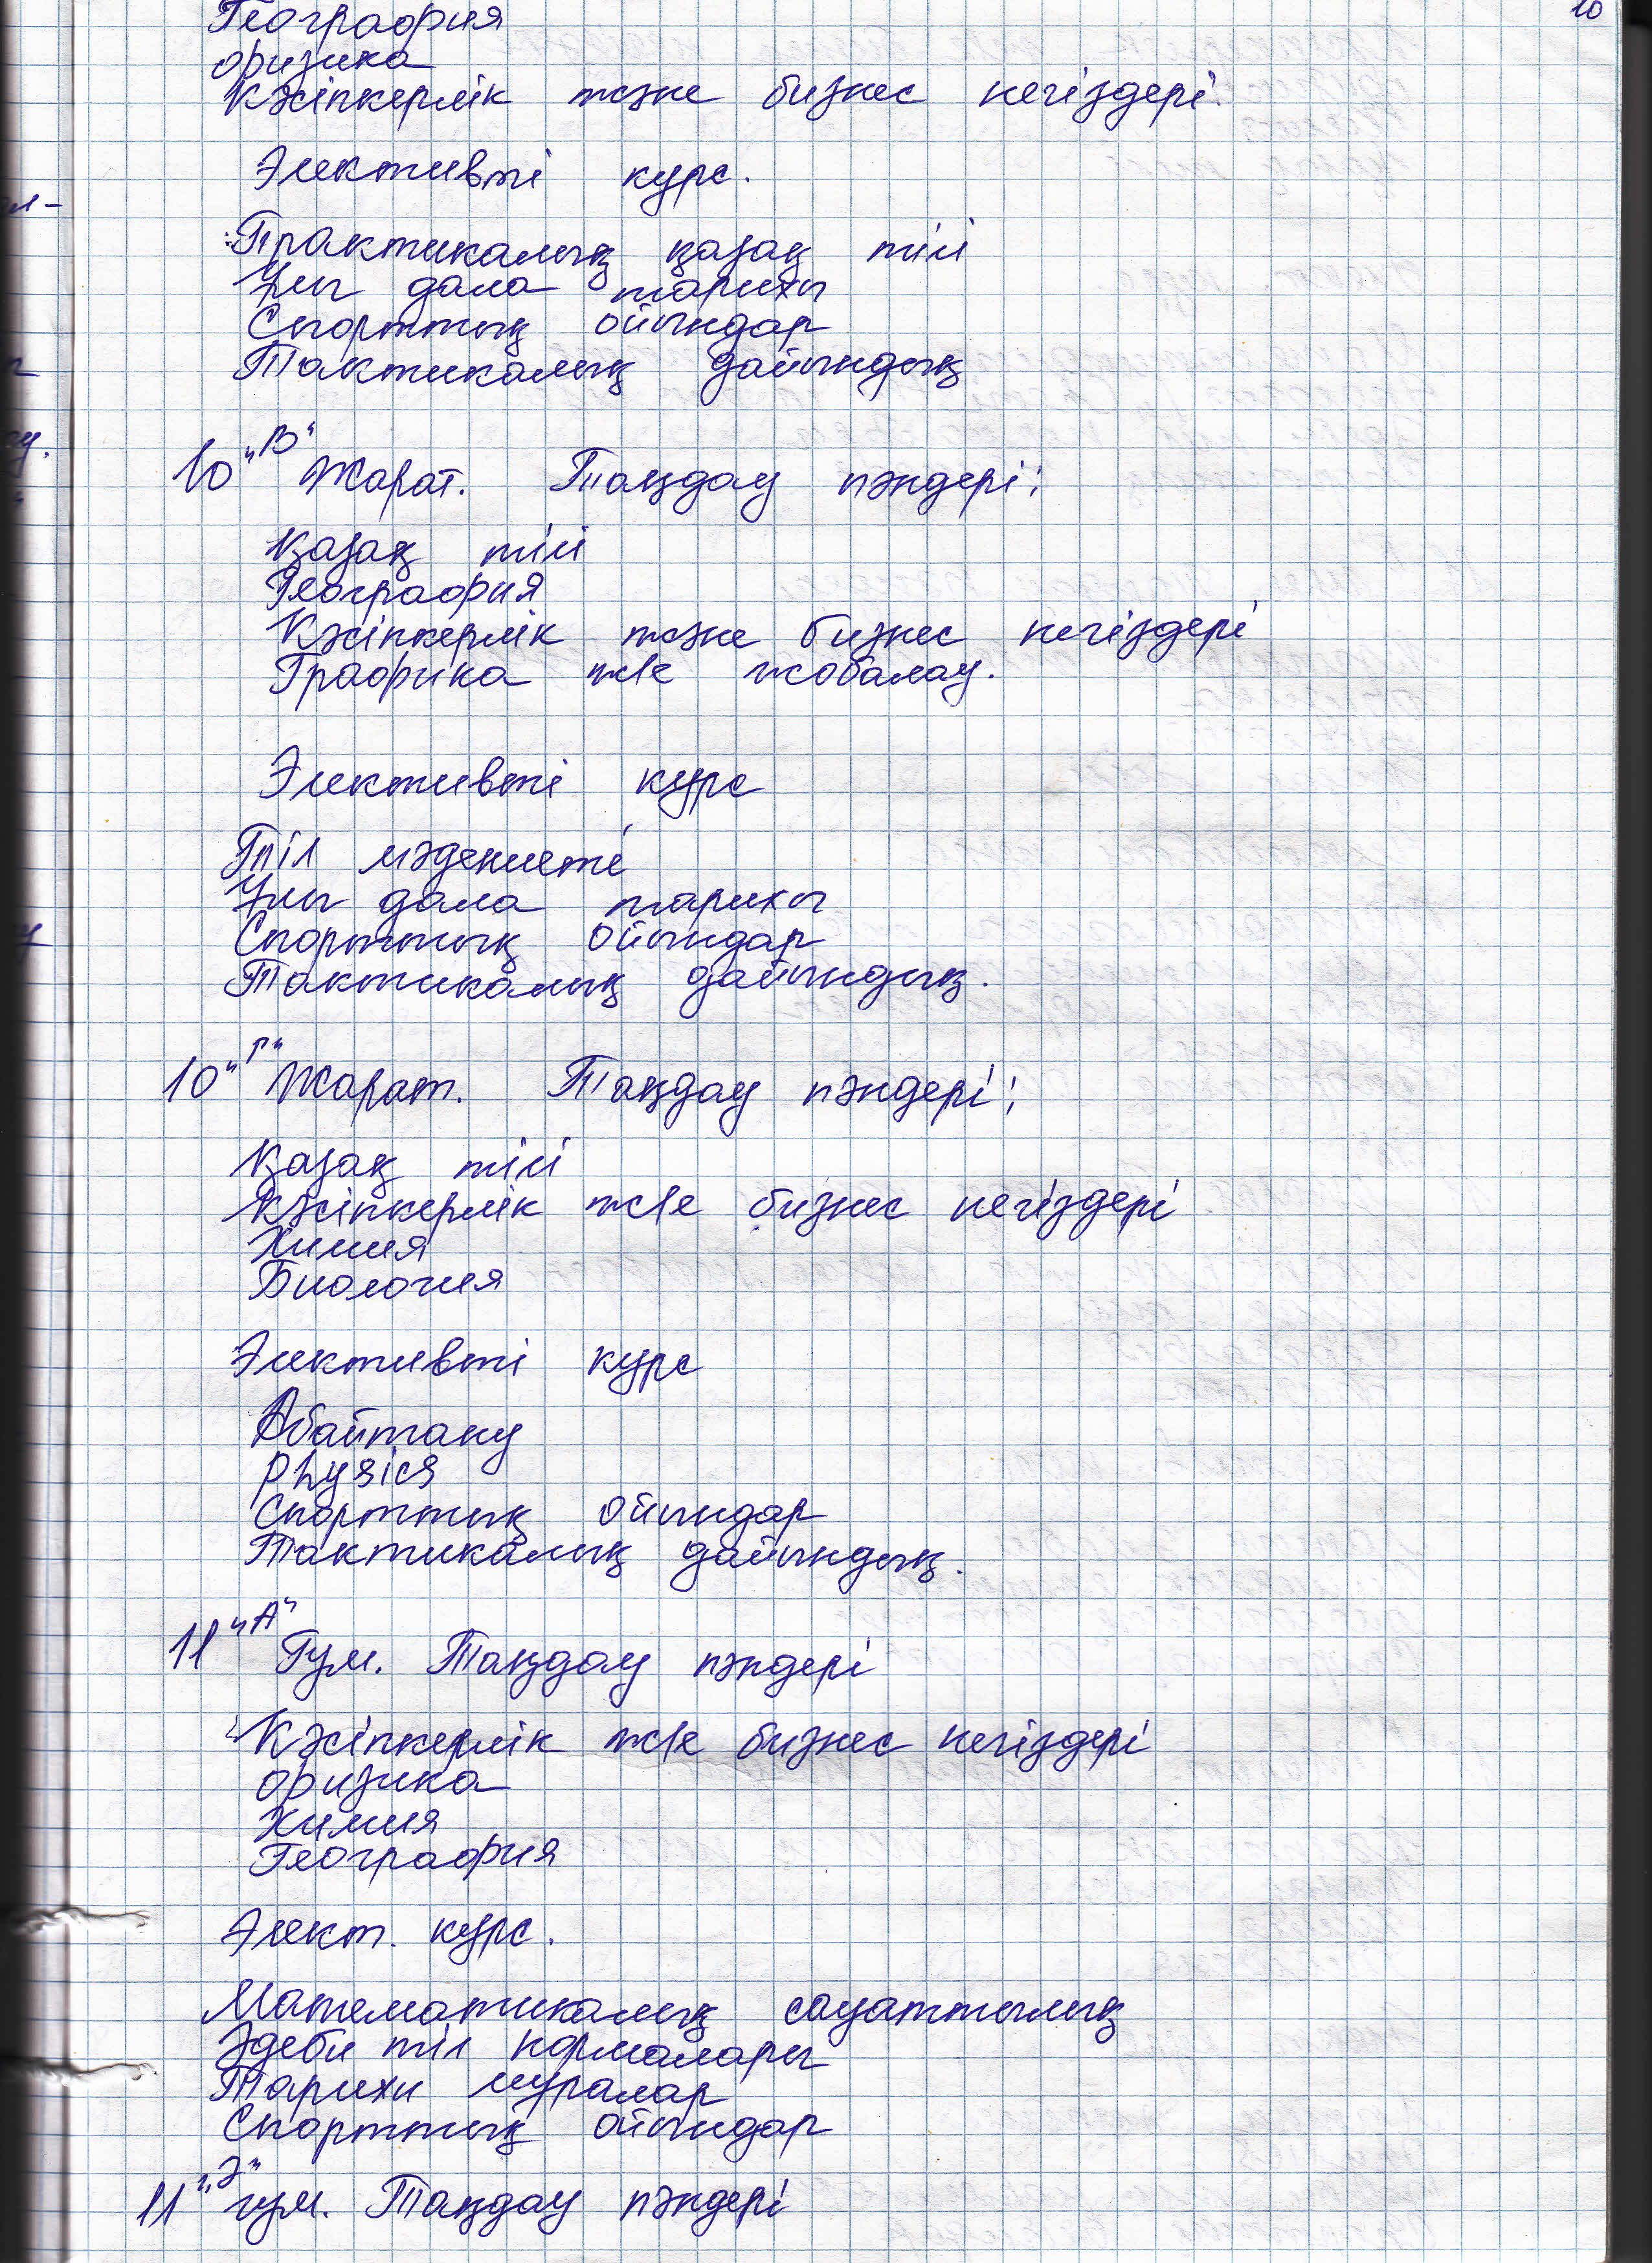 10
География
Физика
Кәсіпкерлік және бизнес негіздері.
Элективті курс.
Практикалық қазақ тілі
Ұлы дала тарихы
Спорттық ойындар
Тактикалық дайындық
10 "В" Жарат. Таңдау пәндері:
Қазақ тілі
География
Кәсіпкерлік және бизнес негіздері
Графика ж/е жобалау.
Элективті курс
Тіл мәдениеті
Ұлы дала тарихы
Спорттық ойындар
Тактикалық дайындық.
10 "Г" Жарат. Таңдау пәндері:
Қазақ тілі
Кәсіпкерлік ж/е бизнес негіздері
Химия
Биология
Элективті курс
Абайтану
Physics
Спорттық ойындар
Тактикалық дайындық.
11 "А" Гум. Таңдау пәндері
Кәсіпкерлік ж/е бизнес негіздері
Физика
Химия
География
Элект. курс.
Математикалық сауаттылық
Әдеби тіл нормалары
Тарихи мұралар
Спорттық ойындар
11 "Ә" гум. Таңдау пәндері